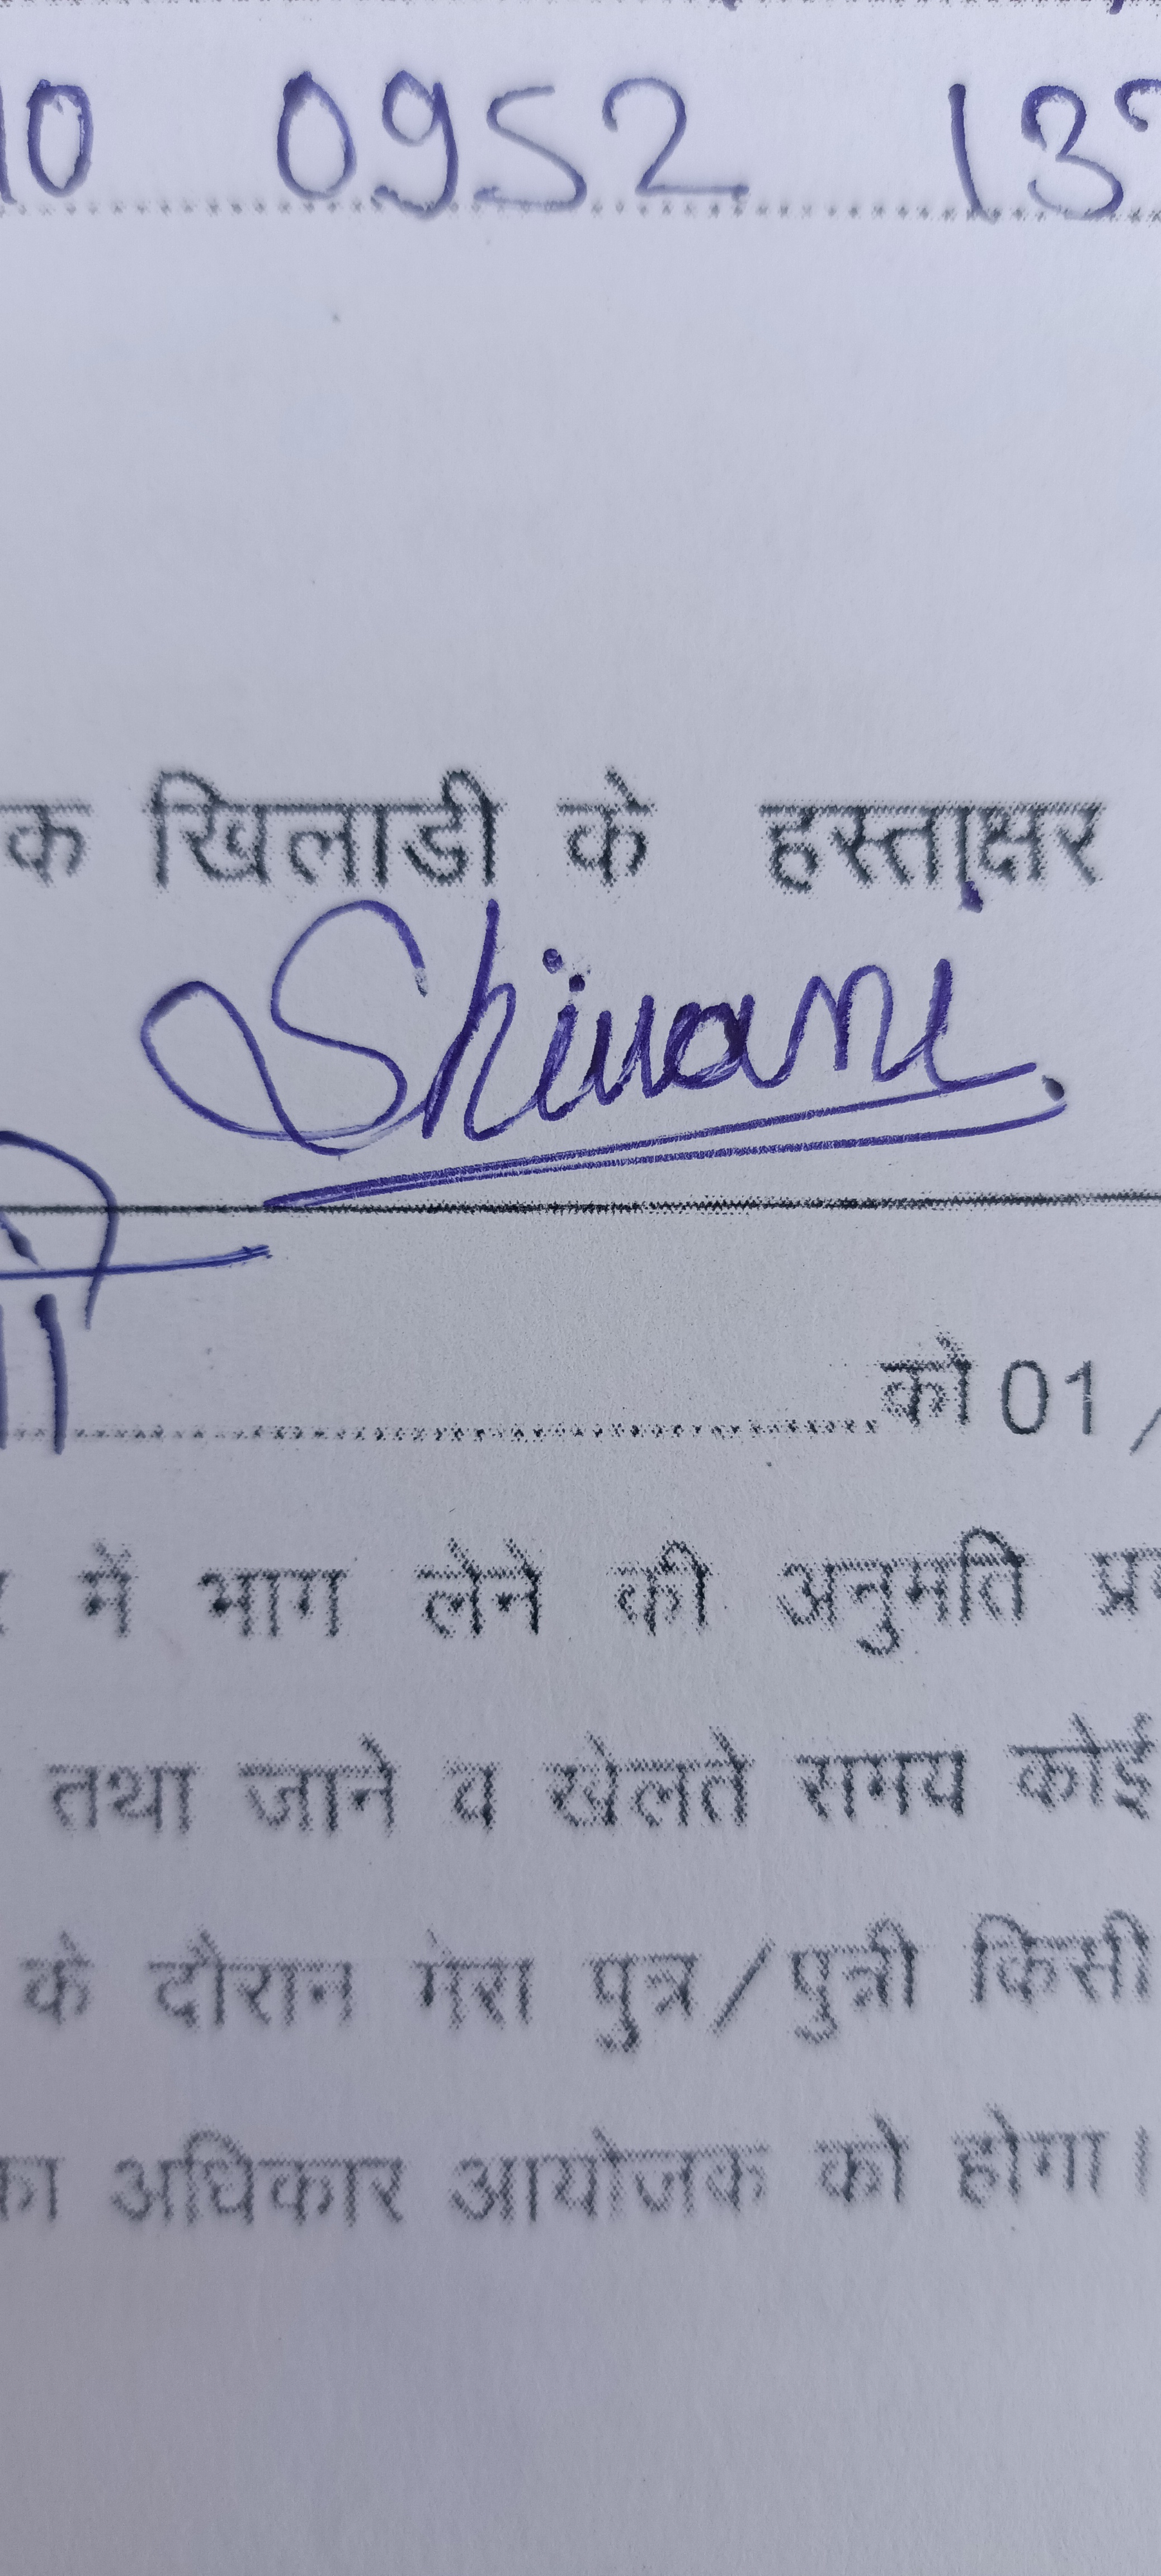 10 0952 13
क खिलाडी के हस्ताक्षर
Shivani.
को 01 /
में भाग लेने की अनुमति
तथा जाने व खेलते समय कोई
के दौरान मेरा पुत्र/पुत्री किसी
का अधिकार आयोजक को होगा।